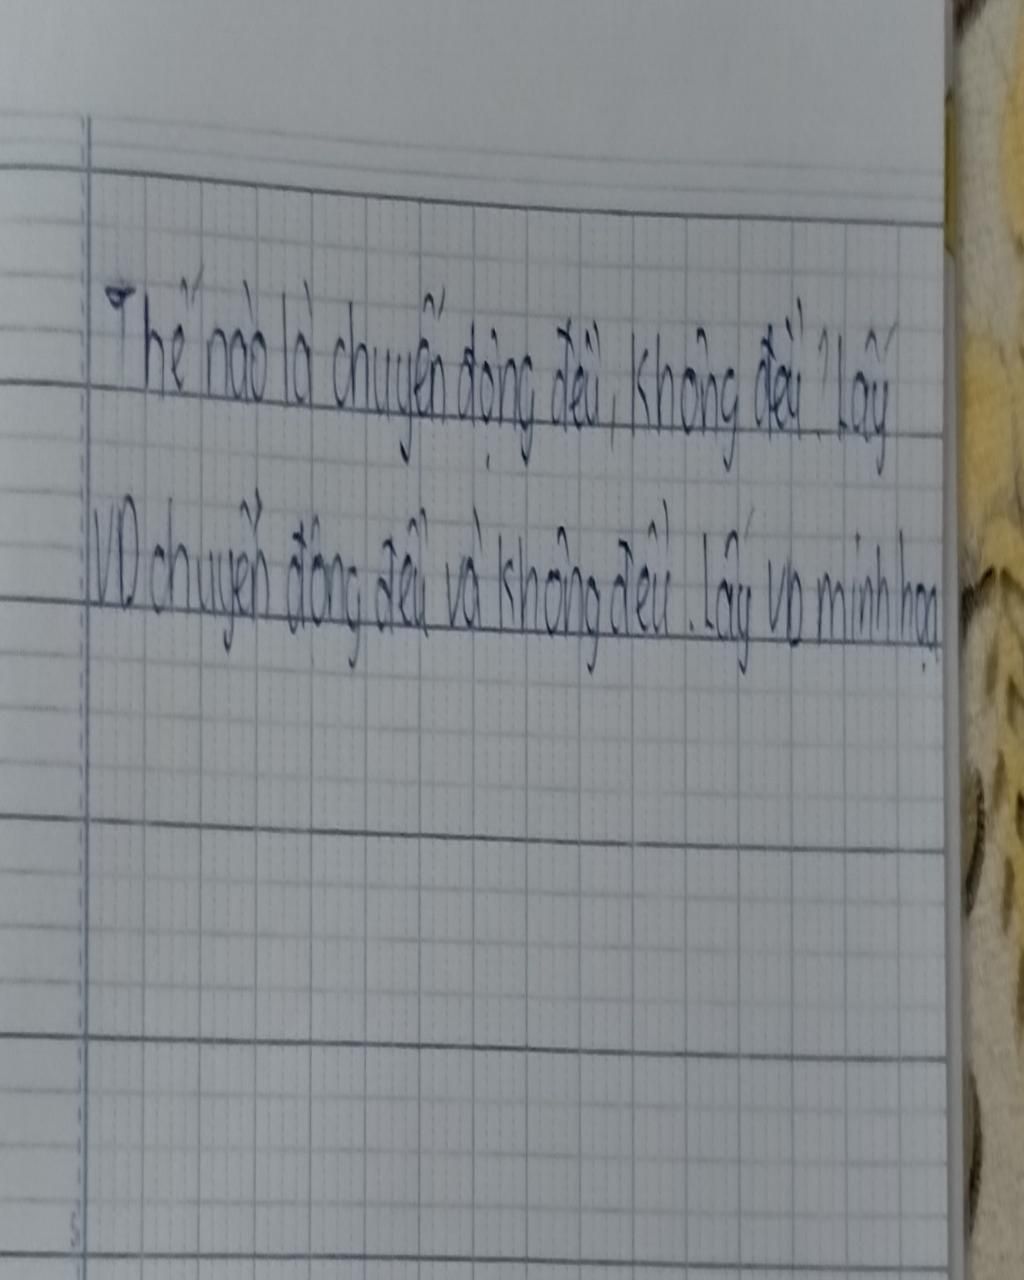 Thế nào là chuyển động đều, không đều? Lấy
VD chuyển động đều và không đều. Lấy VD minh hoạ